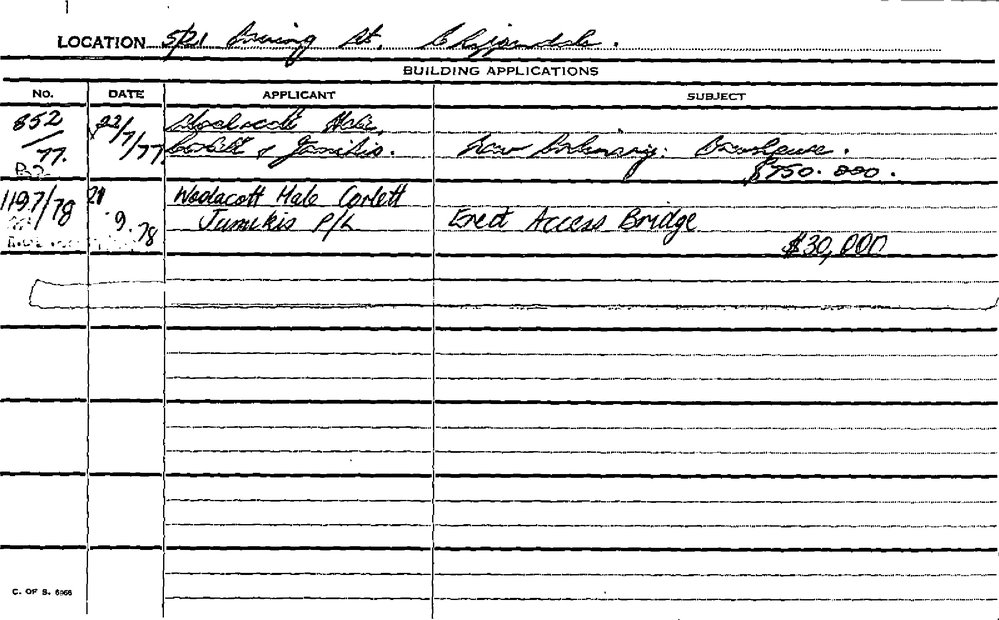 LOCATION 5/21 Irving St. Chippendale.
BUILDING APPLICATIONS
NO. DATE APPLICANT SUBJECT
852 22/7/77 Woolacott Hale,
/77. Corlett & Jumikis. New Brewhouse.
$750.000.
1197/78 21.9.78 Woolacott Hale Corlett
Jumikis P/L Erect Access Bridge
$30,000
C. OF S. 6966